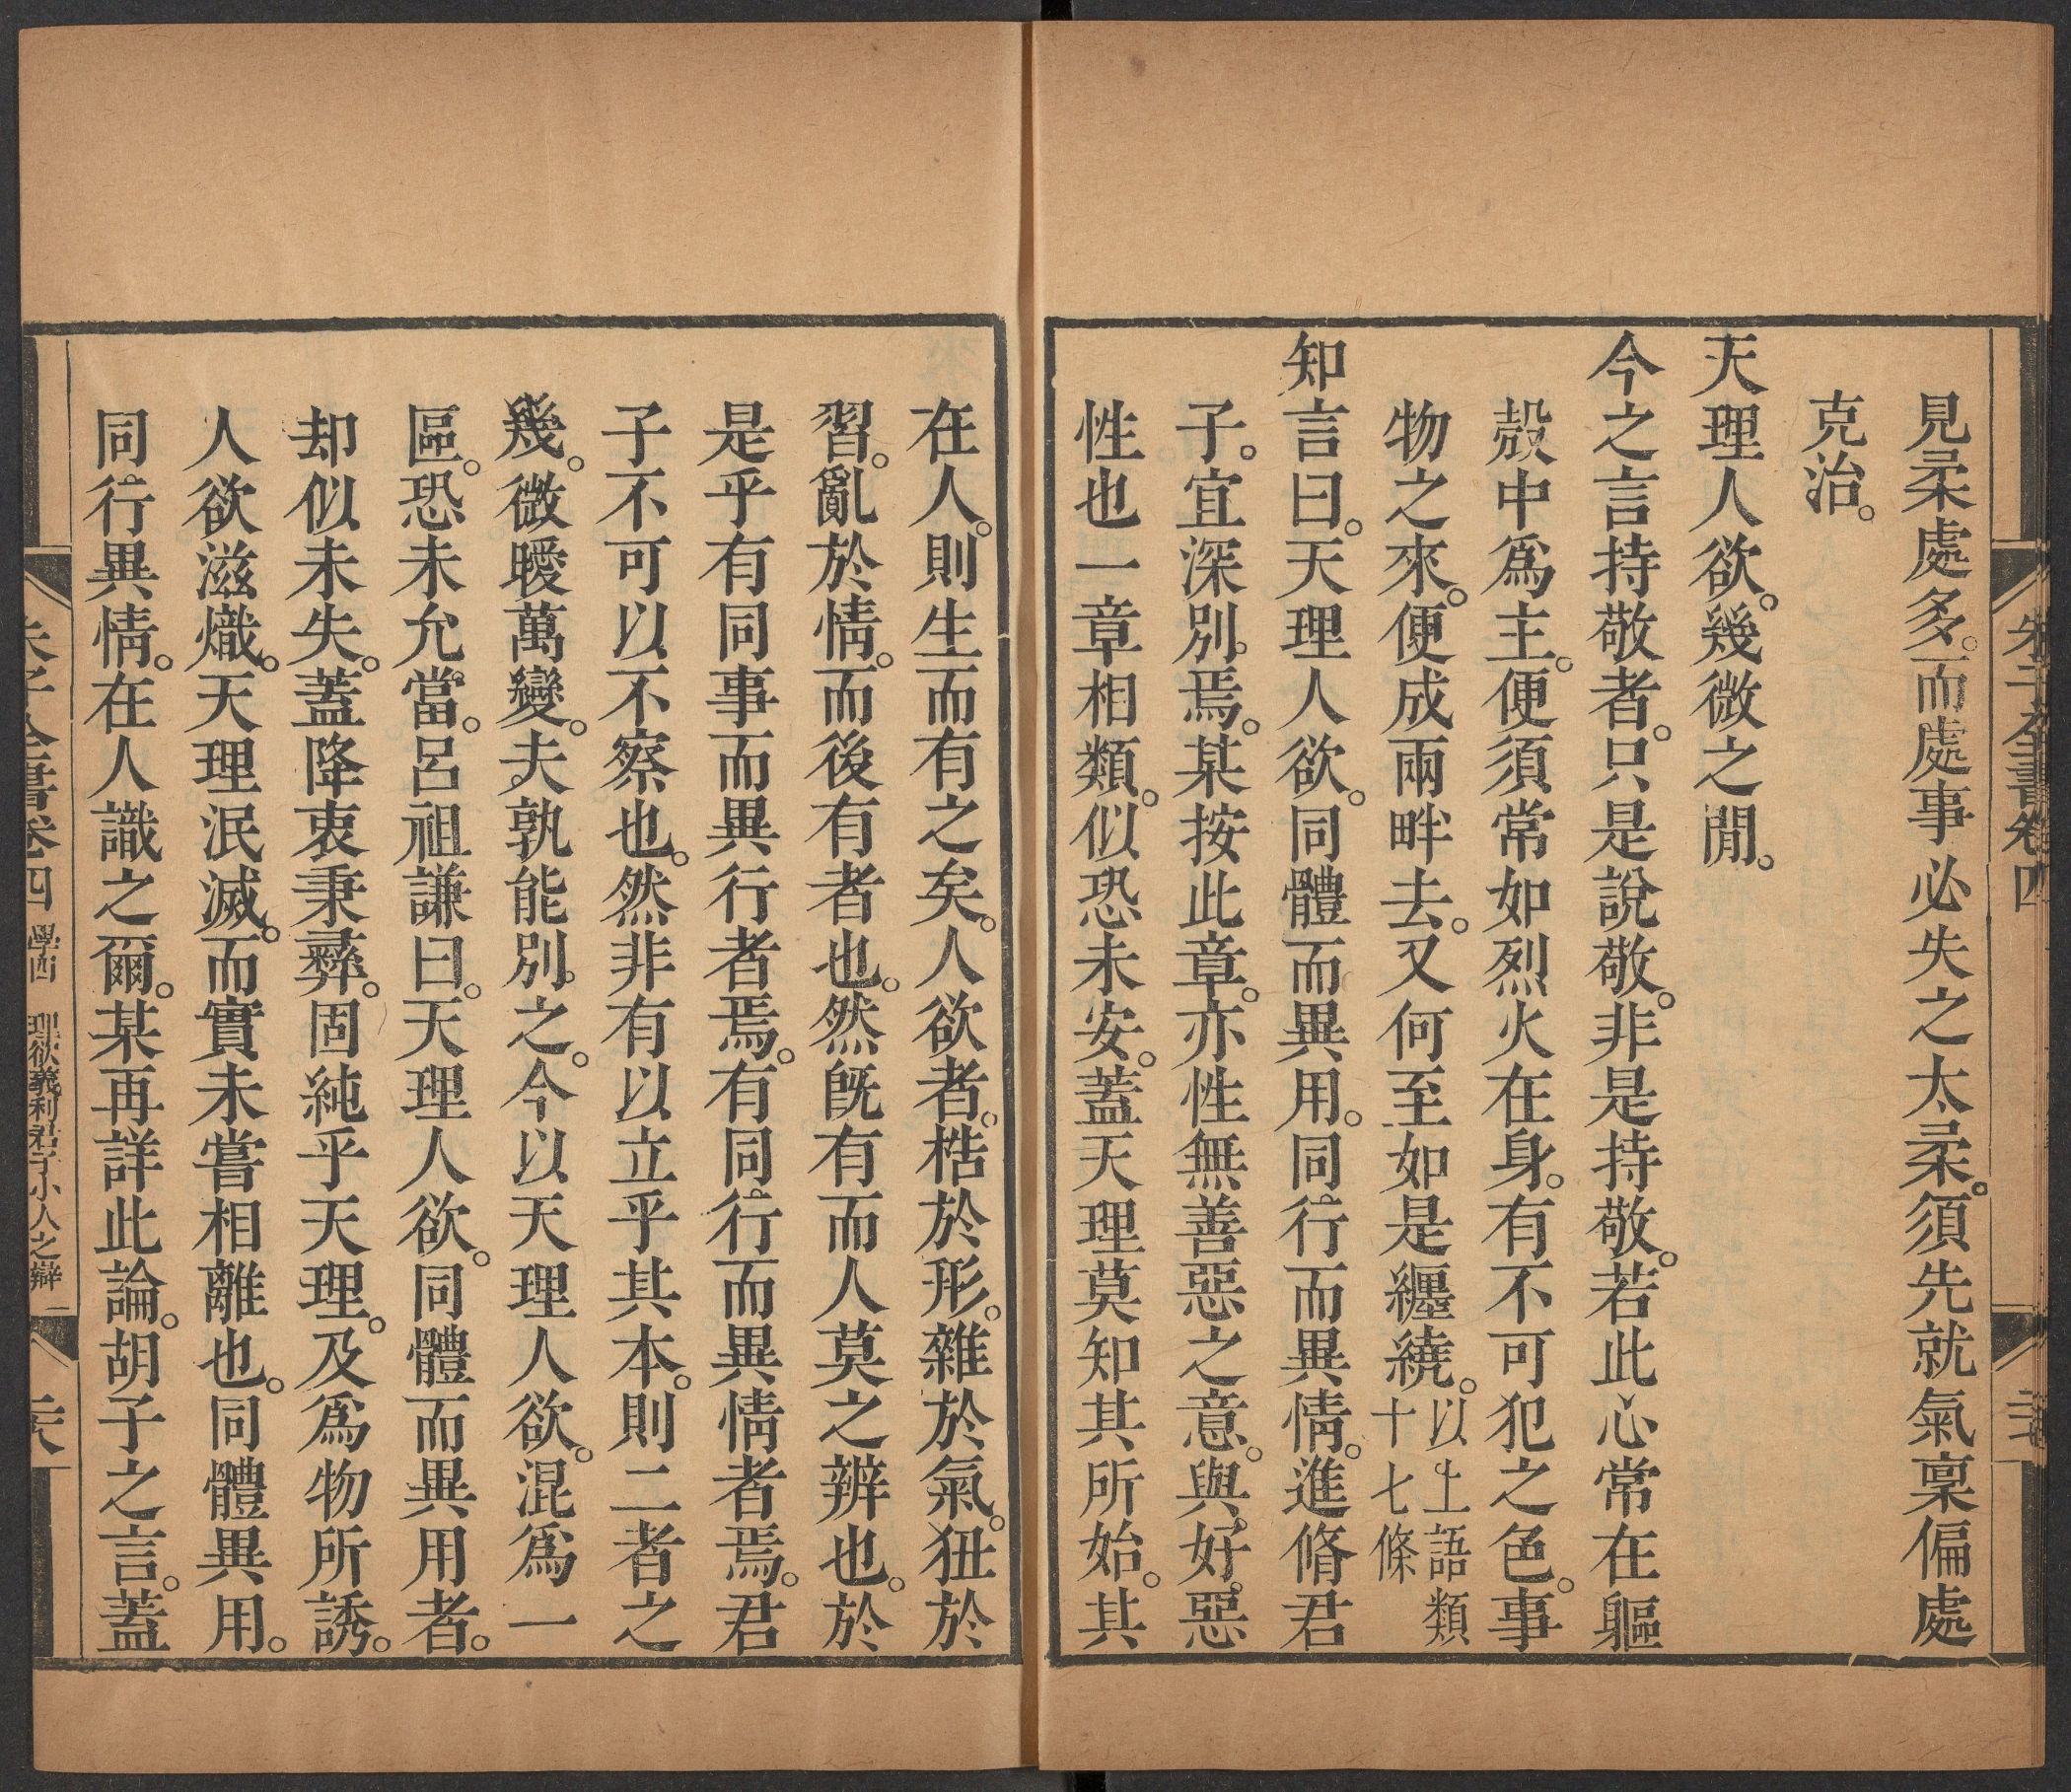 朱子全書卷四
見柔處多。而處事必失之太柔。須先就氣稟偏處
克治。
天理人欲。幾微之閒。
今之言持敬者。只是說敬。非是持敬。若此心常在軀
殼中爲主。便須常如烈火在身。有不可犯之色。事
物之來。便成兩畔去。又何至如是纏繞。以上語類
十七條
知言曰。天理人欲。同體而異用。同行而異情。進脩君
子。宜深別焉。某按此章。亦性無善惡之意。與好惡
性也一章相類。似恐未安。蓋天理莫知其所始。其
在人。則生而有之矣。人欲者。梏於形。雜於氣。狃於
習。亂於情。而後有者也。然旣有而人莫之辨也。於
是乎有同事而異行者焉。有同行而異情者焉。君
子不可以不察也。然非有以立乎其本。則二者之
幾。微曖萬變。夫孰能別之。今以天理人欲。混爲一
區。恐未允當。呂祖謙曰。天理人欲。同體而異用者。
却似未失。蓋降衷秉彝。固純乎天理。及爲物所誘。
人欲滋熾。天理泯滅。而實未嘗相離也。同體異用。
同行異情。在人識之爾。某再詳此論。胡子之言。蓋
朱子全書卷四 學四 理欲義利君子小人之辯 二六